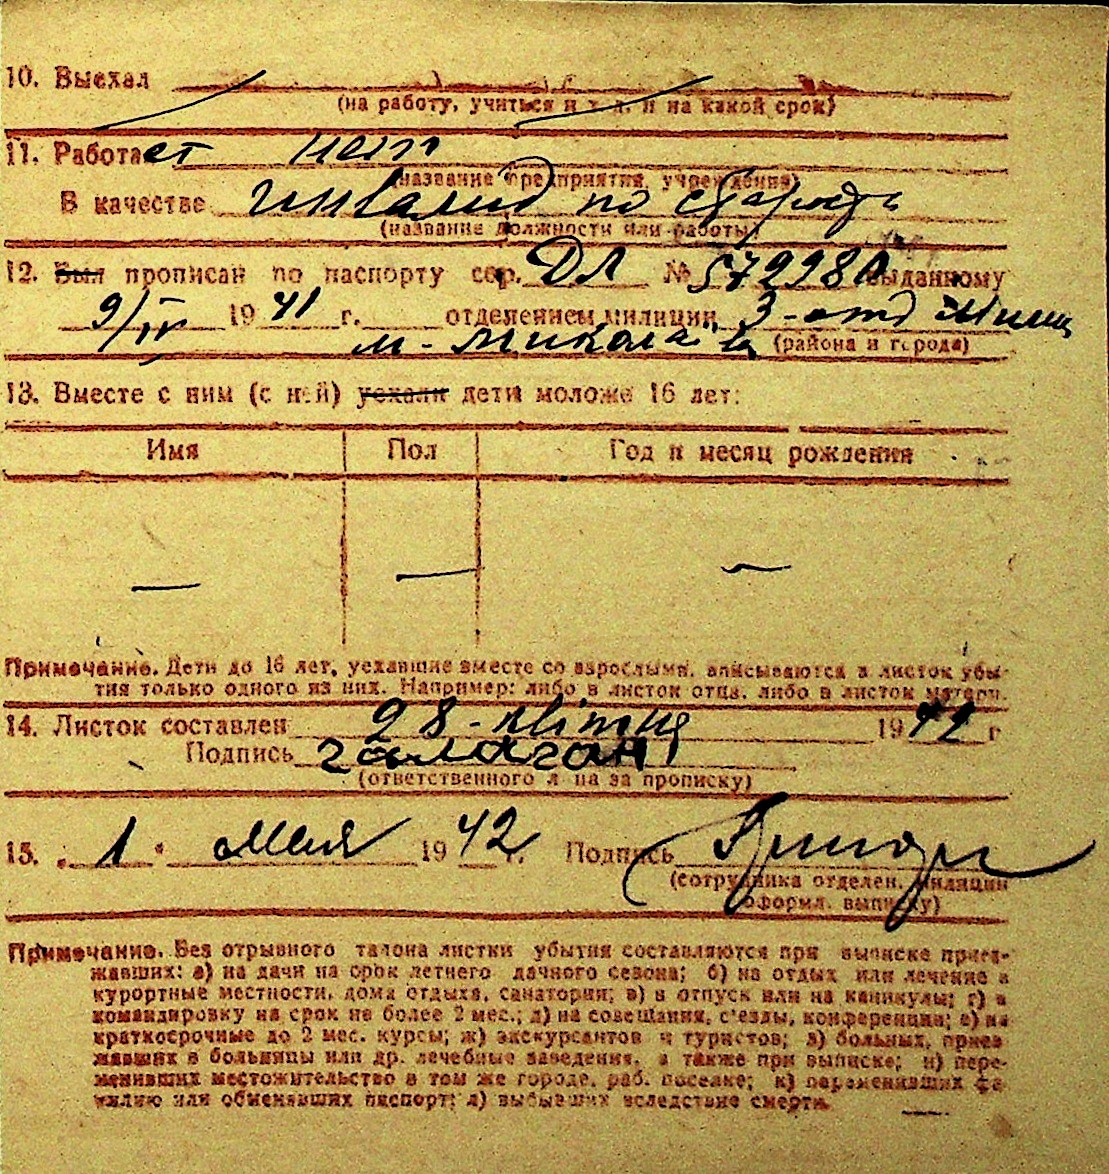 10. Выехал
(на работу, учиться и т. д. и на какой срок)
11. Работает нет
(название предприятия, учреждения)
В качестве инвалид по старости
(название должности или работы)
12. Был прописан по паспорту сер. ДЛ № 579980 выданному
9/IV 1941 г. отделением милиции 3-отд Милиц
м-Миколаїв (района и города)
13. Вместе с ним (с ней) уехали дети моложе 16 лет:
Имя Пол Год и месяц рождения
— — —
Примечание. Дети до 16 лет, уехавшие вместе со взрослыми, вписываются в листок убы-
тия только одного из них. Например: либо в листок отца, либо в листок матери.
14. Листок составлен 28-квітня 1942 г
Подпись Галаган
(ответственного лица за прописку)
15. „1“ Мая 1942 г. Подпись
(сотрудника отделен. милиции
оформл. выписку)
Примечание. Без отрывного талона листки убытия составляются при выписке приез-
жавших: а) на дачи на срок летнего дачного сезона; б) на отдых или лечение в
курортные местности, дома отдыха, санатории; в) в отпуск или на каникулы; г) в
командировку на срок не более 2 мес.; д) на совещания, с'езды, конференции; е) на
краткосрочные до 2 мес. курсы; ж) экскурсантов и туристов; з) больных, приез
жавших в больницы или др. лечебные заведения, а также при выписке; и) пере-
менивших местожительство в том же городе, раб. поселке; к) переменивших фа
милию или обменявших паспорт; л) выбывших вследствие смерти.